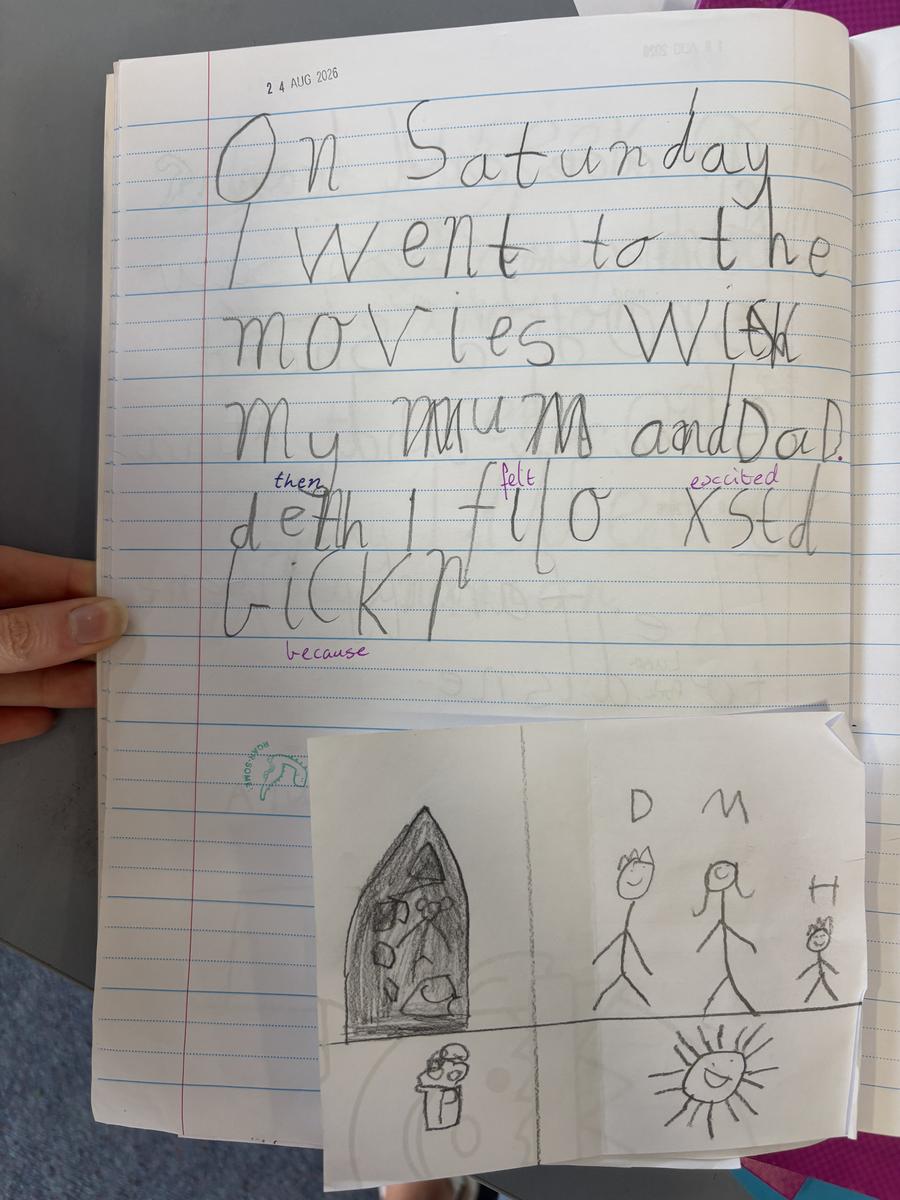 24 AUG 2026
On Saturday
I went to the
movies with
my mum and DaD.
then felt excited
deth I filo xstd
bickr
because
ROAR-SOME
D M
H